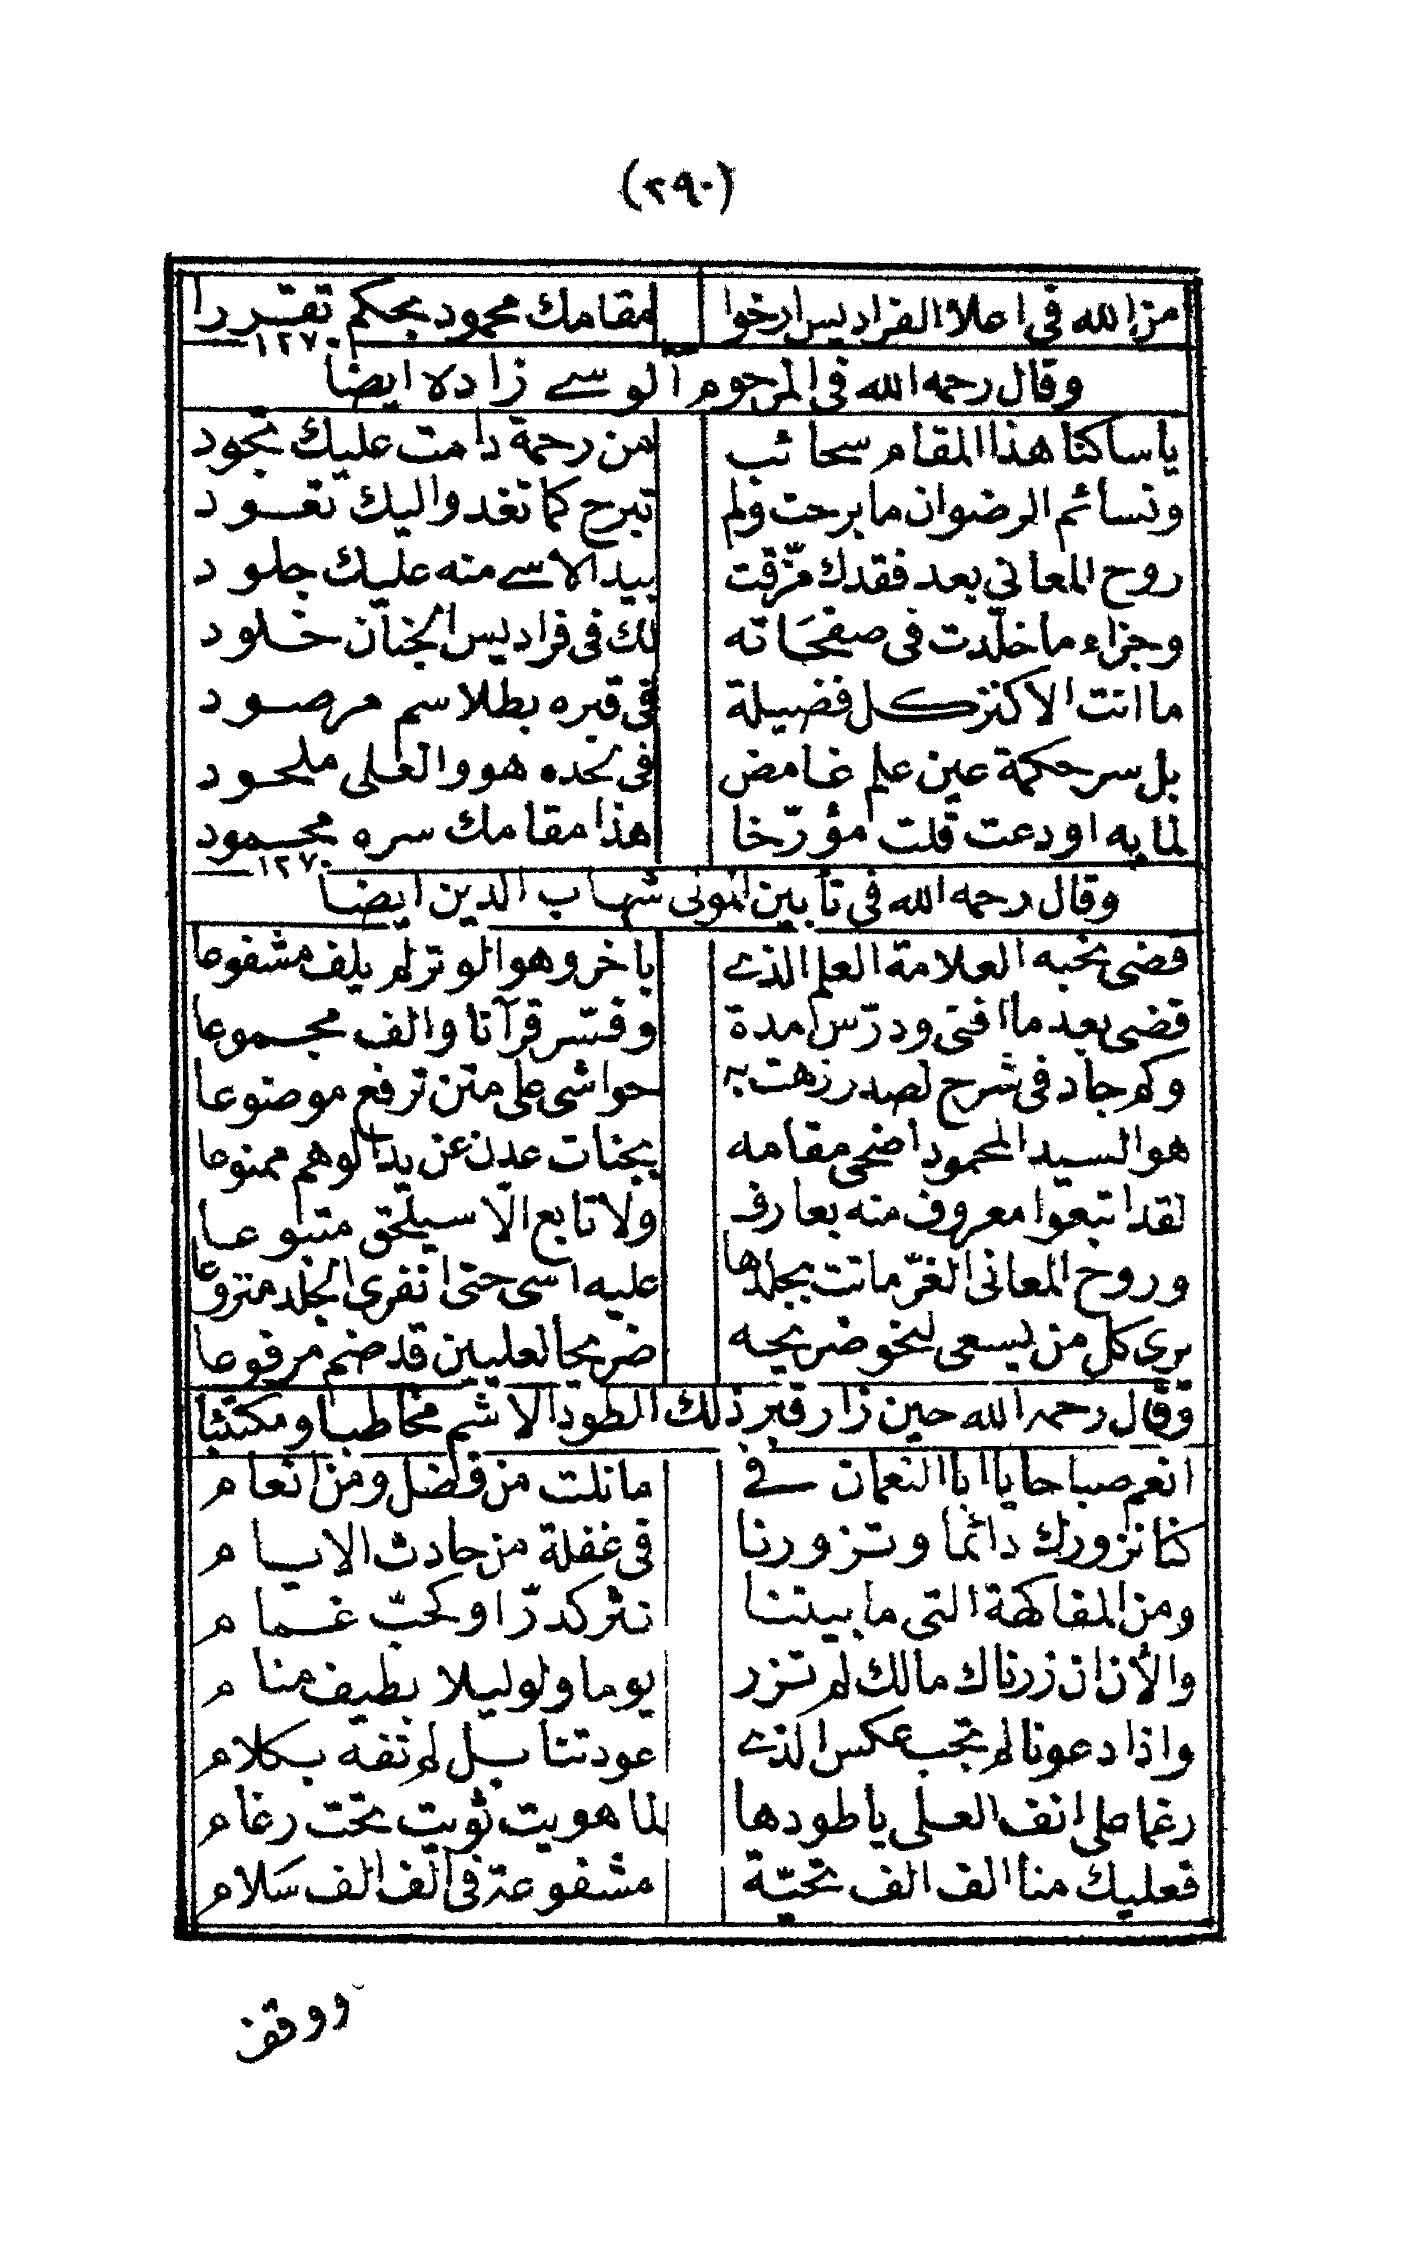 (٢٩٠)
من الله في اعلا الفراديس ارخوا مقامك محمود بحكم تقررا
١٢٧٠
وقال رحمه الله في المرحوم آلوسے زاده ايضا
يا ساكنا هذا المقام سحائب من رحمة دامت عليك تجود
ونسائم الرضوان ما برحت ولم تبرح كما تغدو اليك تعود
روح المعاني بعد فقدك مزّقت بيد الاسے منه عليك جلود
وجزاء ما خلّدت في صفحاته لك في فراديس الجنان خلود
ما انت الا كنز كل فضيلة في قبره بطلاسم مرصود
بل سر حكمة عين علم غامض في لحده هو والعلى ملحود
لما به اودعت قلت مؤرّخا هذا مقامك سره محمود
١٢٧٠
وقال رحمه الله في تأبين المولى شهاب الدين ايضا
قضى نحبه العلامة العلم الذے باخر وهو الوتر لم يلف مشفوعا
قضى بعد ما افتى ودرّس مدة وفسّر قرآنا والف مجموعا
وكم جاد في شرح لصدر زهت به حواشى على متن ترفع موضوعا
هو السيد المحمود اضحى مقامه بجنات عدن عن يد الوهم ممنوعا
لقد اتبعوا معروف منه بعارف ولا تابع الا سيلحق متبوعا
وروح المعانى الغرّ ماتت بجلدها عليه اسى حتى انفرى الجلد منزوعا
يرى كل من يسعى لنحو ضريحه ضريحا لعليين قد ضم مرفوعا
وقال رحمه الله حين زار قبر ذلك الطود الاشم مخاطبا ومكتئبا
انعم صباحا يا ابا النعمان في ما نلت من فضل ومن انعام
كنا نزورك دائما وتزورنا في غفلة من حادث الايام
ومن المفاكهة التى ما بيننا نثر كدرّ او كحبّ غمام
والآن ان زرناك مالك لم تزر يوما ولو ليلا بطيف منام
واذا دعونا لم تجب عكس الذے عودتنا بل لم تفه بكلام
رغما على انف العلى يا طودها لما هويت ثويت تحت رغام
فعليك منا الف الف تحيّة مشفوعة في الف الف سلام
ووقف